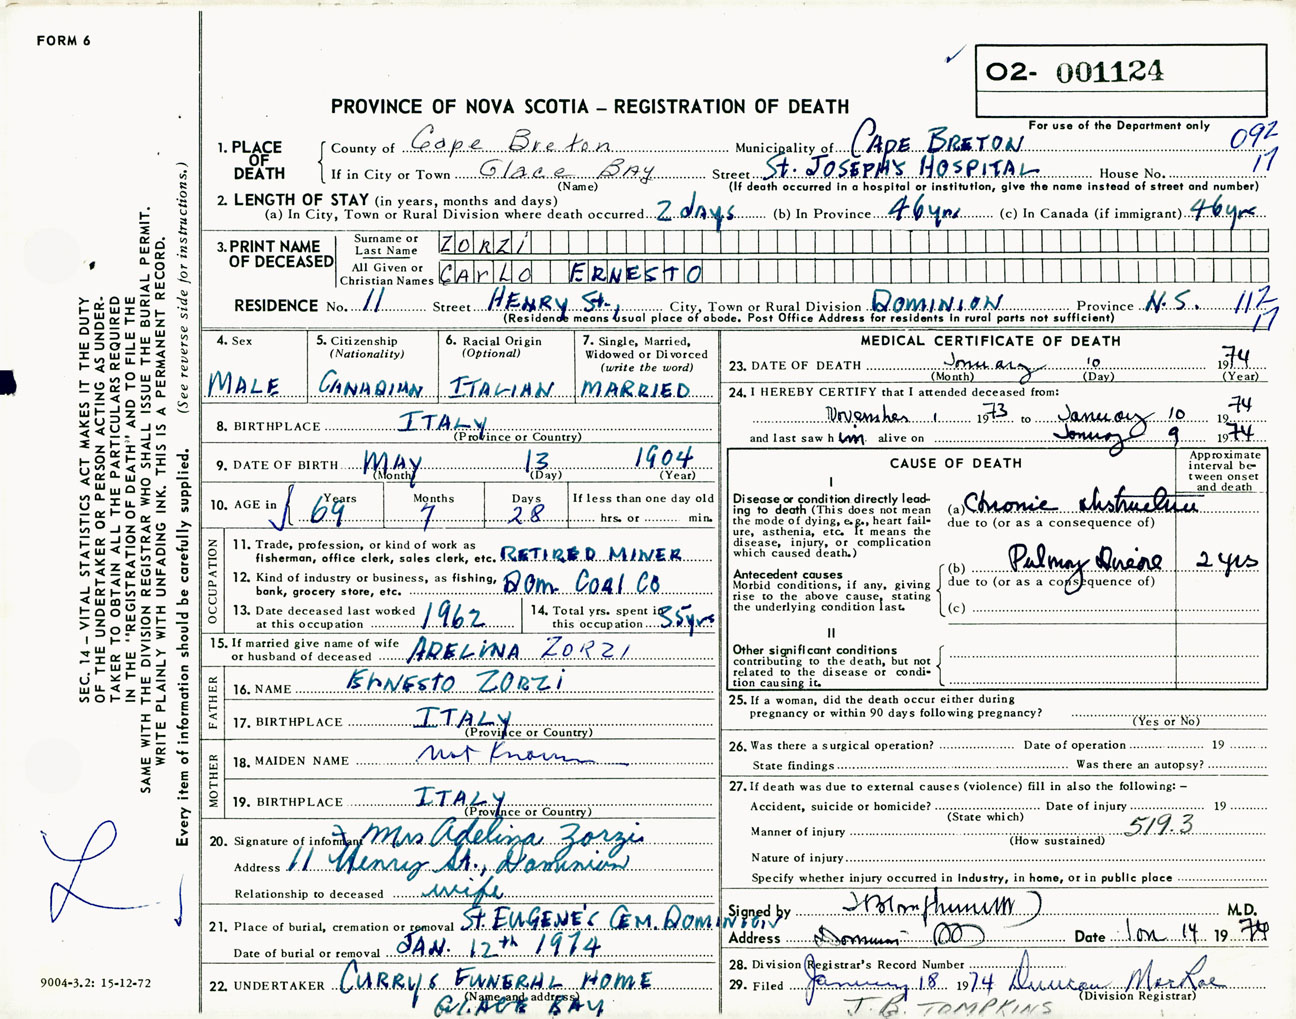 FORM 6
02- 001124
PROVINCE OF NOVA SCOTIA – REGISTRATION OF DEATH
For use of the Department only
092
17
1. PLACE OF DEATH
County of Cape Breton Municipality of CAPE BRETON
If in City or Town Glace BAY Street ST. JOSEPH'S HOSPITAL House No.
(Name) (If death occurred in a hospital or institution, give the name instead of street and number)
2. LENGTH OF STAY (in years, months and days)
(a) In City, Town or Rural Division where death occurred 2 days (b) In Province 46 yrs (c) In Canada (if immigrant) 46 yrs
3. PRINT NAME OF DECEASED
Surname or Last Name ZORZI
All Given or Christian Names CARLO ERNESTO
RESIDENCE No. 11 Street HENRY ST., City, Town or Rural Division DOMINION Province N.S. 112
17
(Residence means usual place of abode. Post Office Address for residents in rural parts not sufficient)
4. Sex
MALE
5. Citizenship
(Nationality)
CANADIAN
6. Racial Origin
(Optional)
ITALIAN
7. Single, Married,
Widowed or Divorced
(write the word)
MARRIED
8. BIRTHPLACE ITALY
(Province or Country)
9. DATE OF BIRTH MAY 13 1904
(Month) (Day) (Year)
10. AGE in Years Months Days If less than one day old
69 7 28 hrs. or min.
OCCUPATION
11. Trade, profession, or kind of work as
fisherman, office clerk, sales clerk, etc. RETIRED MINER
12. Kind of industry or business, as fishing,
bank, grocery store, etc. DOM. COAL CO
13. Date deceased last worked
at this occupation 1962
14. Total yrs. spent in
this occupation 35 yrs
15. If married give name of wife
or husband of deceased ADELINA ZORZI
FATHER
16. NAME ERNESTO ZORZI
17. BIRTHPLACE ITALY
(Province or Country)
MOTHER
18. MAIDEN NAME not Known
19. BIRTHPLACE ITALY
(Province or Country)
20. Signature of informant Mrs Adelina Zorzi
Address 11 Henry St., Dominion
Relationship to deceased wife
21. Place of burial, cremation or removal ST EUGENE'S CEM. DOMINION
Date of burial or removal JAN. 12th 1974
22. UNDERTAKER CURRYS FUNERAL HOME
(Name and address)
GLACE BAY
MEDICAL CERTIFICATE OF DEATH
23. DATE OF DEATH January 10 1974
(Month) (Day) (Year)
24. I HEREBY CERTIFY that I attended deceased from:
November 1 1973 to January 10 1974
and last saw him alive on January 9 1974
CAUSE OF DEATH
Approximate
interval be-
tween onset
and death
I
Disease or condition directly lead-
ing to death (This does not mean
the mode of dying, e.g., heart fail-
ure, asthenia, etc. It means the
disease, injury, or complication
which caused death.)
(a) Chronic obstructive
due to (or as a consequence of)
Antecedent causes
Morbid conditions, if any, giving
rise to the above cause, stating
the underlying condition last.
(b) Pulmoy Disease 2 yrs
due to (or as a consequence of)
(c)
II
Other significant conditions
contributing to the death, but not
related to the disease or condi-
tion causing it.
25. If a woman, did the death occur either during
pregnancy or within 90 days following pregnancy?
(Yes or No)
26. Was there a surgical operation? Date of operation 19
State findings Was there an autopsy?
27. If death was due to external causes (violence) fill in also the following: –
Accident, suicide or homicide? Date of injury 19
(State which)
Manner of injury 519.3
(How sustained)
Nature of injury
Specify whether injury occurred in Industry, in home, or in public place
Signed by M.D.
Address Dominion Date Jan 14 1974
28. Division Registrar's Record Number
29. Filed January 18 1974 Duncan MacRae
(Division Registrar)
J. B. TOMPKINS
SEC. 14 – VITAL STATISTICS ACT MAKES IT THE DUTY
OF THE UNDERTAKER OR PERSON ACTING AS UNDER-
TAKER TO OBTAIN ALL THE PARTICULARS REQUIRED
IN THE "REGISTRATION OF DEATH" AND TO FILE THE
SAME WITH THE DIVISION REGISTRAR WHO SHALL ISSUE THE BURIAL PERMIT.
WRITE PLAINLY WITH UNFADING INK. THIS IS A PERMANENT RECORD.
Every item of information should be carefully supplied. (See reverse side for instructions.)
9004-3.2: 15-12-72